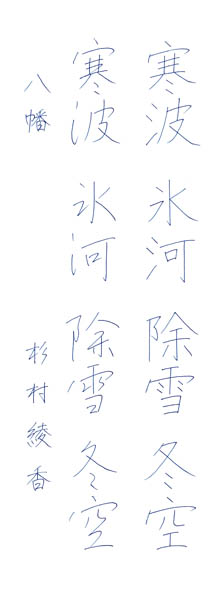 寒波 氷河 除雪 冬空
寒波 氷河 除雪 冬空
八幡 杉村綾香